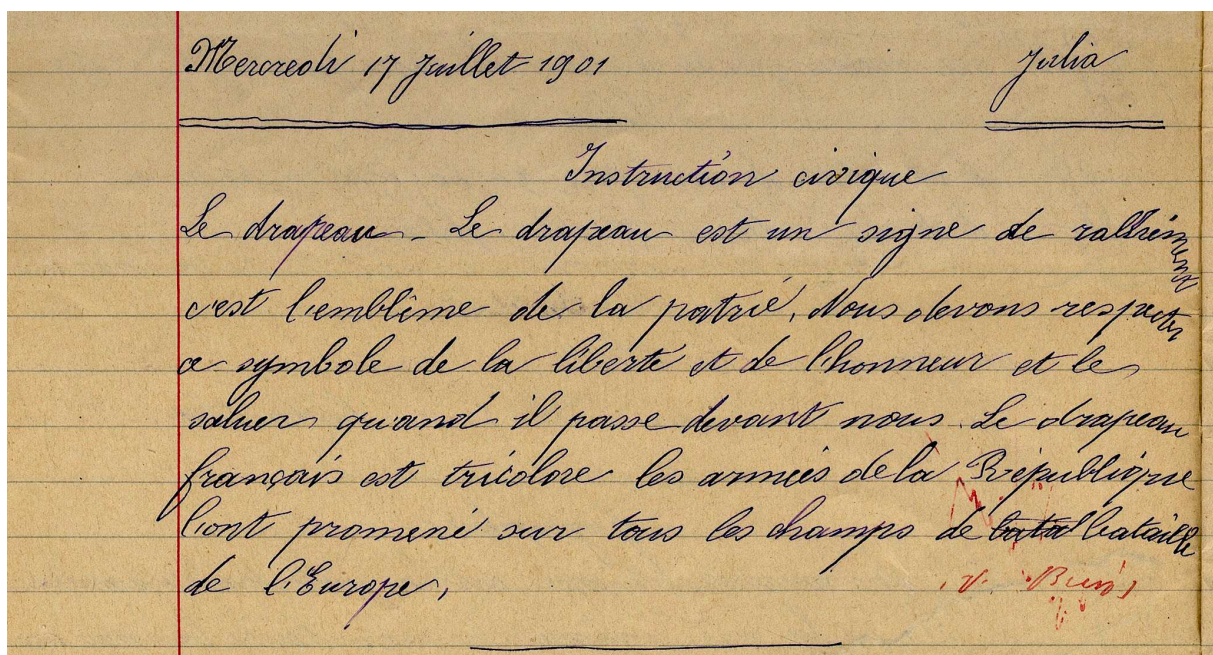 Mercredi 17 Juillet 1901 Julia
Instruction civique
Le drapeau - Le drapeau est un signe de ralliement
c'est l'emblême de la patrie. Nous devons respecter
ce symbole de la liberté et de l'honneur et le
saluer quand il passe devant nous. Le drapeau
français est tricolore les armées de la République
l'ont promené sur tous les champs de batai bataille
de l'Europe.